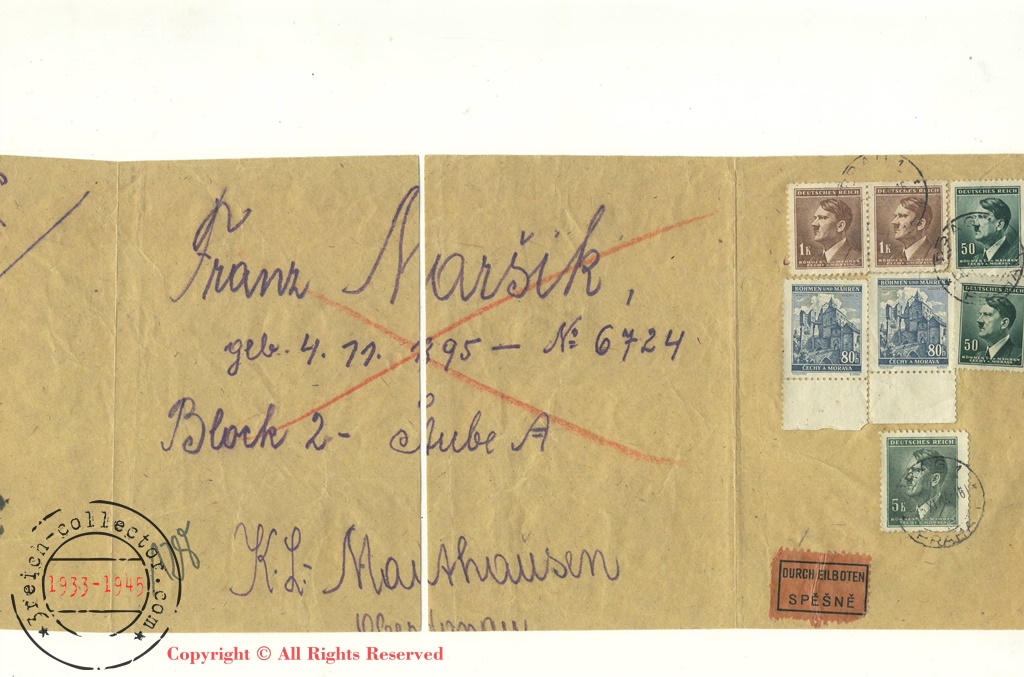 Franz Naršík,
geb. 4. 11. 1895 — № 6724
Block 2 - Stube A
K.L. Mauthausen
DEUTSCHES REICH
1 K
BÖHMEN U. MÄHREN
ČECHY A MORAVA
DEUTSCHES REICH
1 K
BÖHMEN U. MÄHREN
ČECHY A MORAVA
DEUTSCHES REICH
50
BÖHMEN U. MÄHREN
ČECHY A MORAVA
BÖHMEN UND MÄHREN
80h
ČECHY A MORAVA
BÖHMEN UND MÄHREN
80h
ČECHY A MORAVA
DEUTSCHES REICH
50
BÖHMEN U. MÄHREN
ČECHY A MORAVA
DEUTSCHES REICH
5 K
BÖHMEN U. MÄHREN
ČECHY A MORAVA
PRAHA 1
DURCH EILBOTEN
SPĚŠNĚ
3reich-collector.com
1933-1945
Copyright © All Rights Reserved